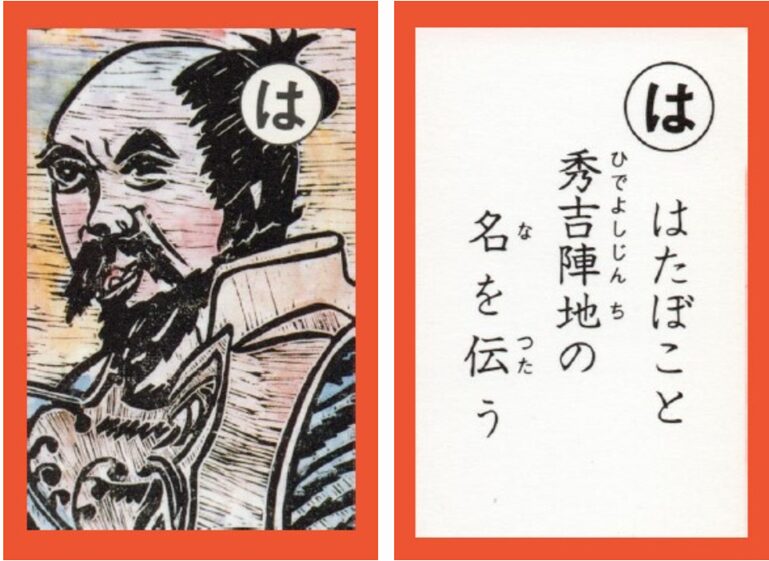 は
は
はたぼこと
秀吉陣地の
ひでよしじんち
名を伝う
な
つた